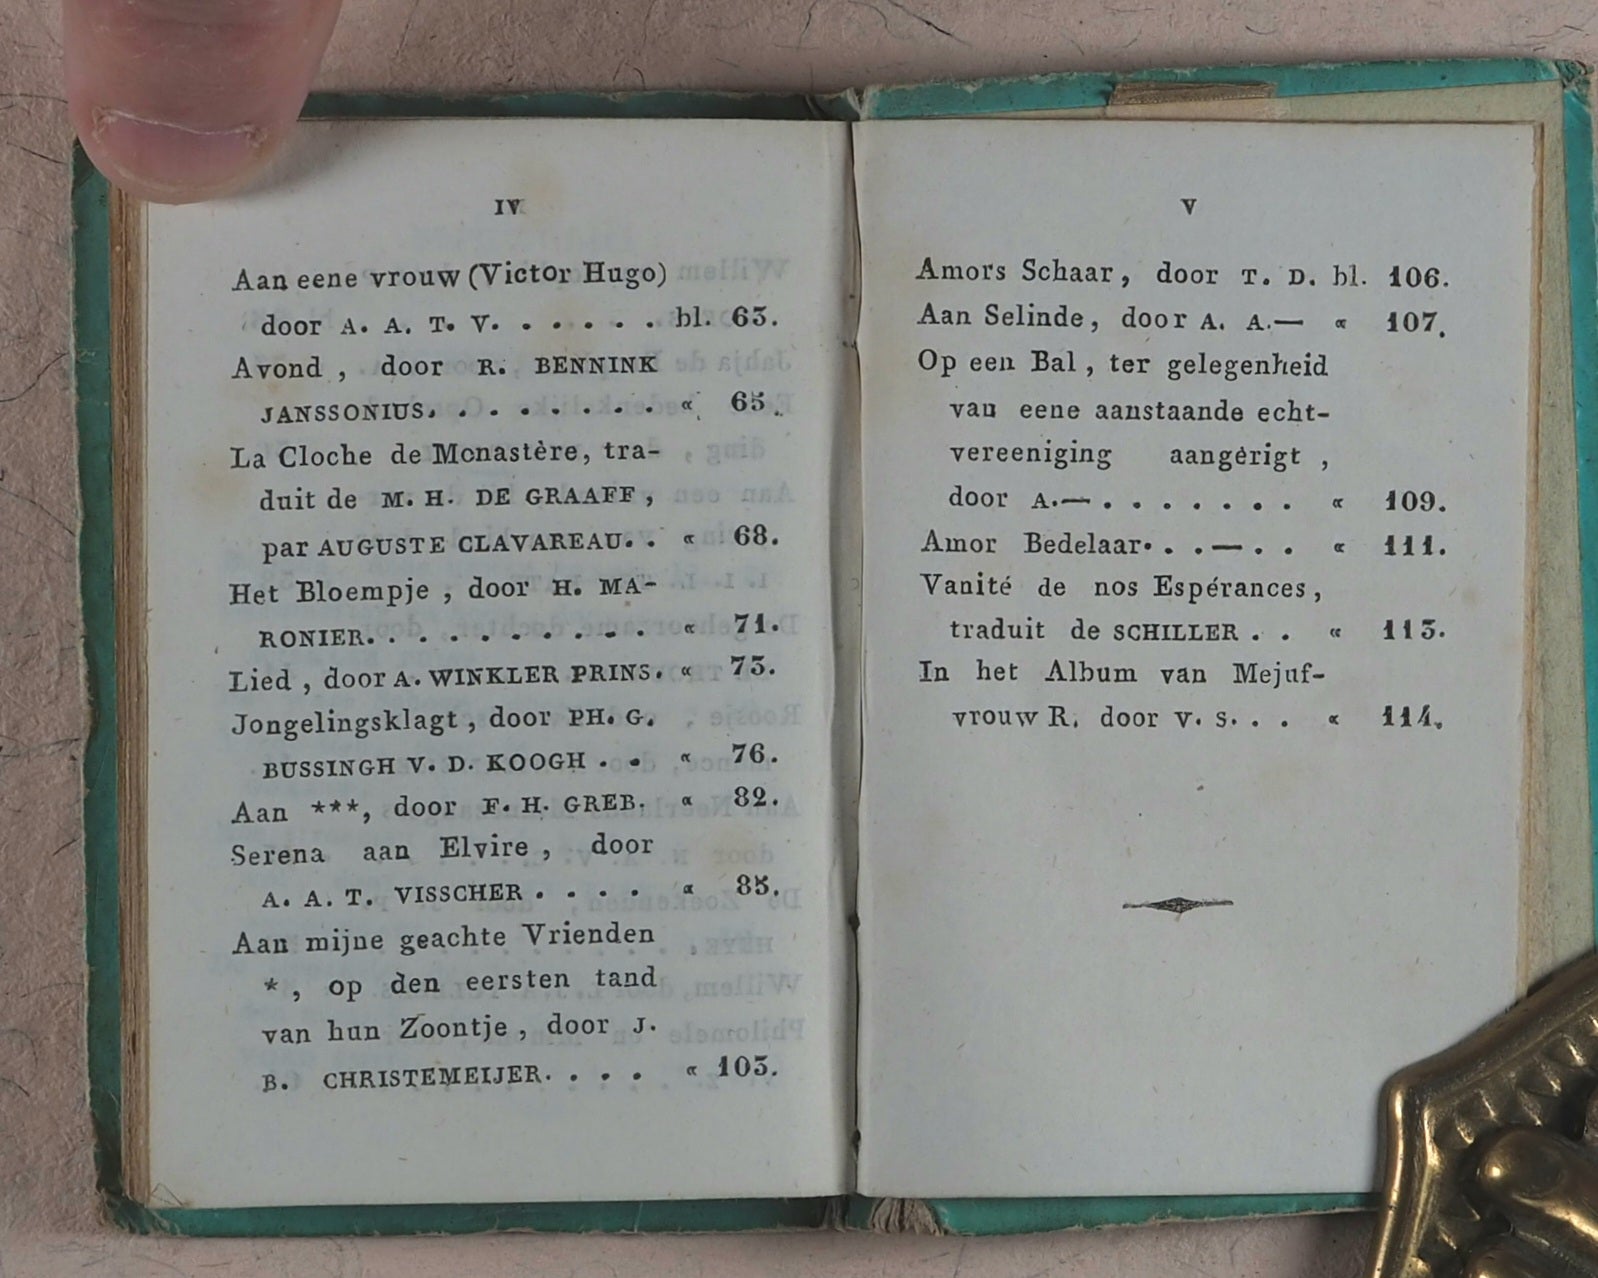 IV
Aan eene vrouw (Victor Hugo)
door A. A. T. V. . . . . . bl. 63.
Avond , door R. BENNINK
JANSSONIUS. . . . . . . . « 65.
La Cloche de Monastère, tra-
duit de M. H. DE GRAAFF ,
par AUGUSTE CLAVAREAU. . « 68.
Het Bloempje , door H. MA-
RONIER. . . . . . . . . . « 71.
Lied , door A. WINKLER PRINS. « 73.
Jongelingsklagt , door PH. G.
BUSSINGH V. D. KOOGH . . « 76.
Aan ***, door F. H. GREB. « 82.
Serena aan Elvire , door
A. A. T. VISSCHER . . . . « 85.
Aan mijne geachte Vrienden
* , op den eersten tand
van hun Zoontje , door J.
B. CHRISTEMEIJER. . . . « 103.
V
Amors Schaar , door T. D. bl. 106.
Aan Selinde , door A. A.— « 107.
Op een Bal , ter gelegenheid
van eene aanstaande echt-
vereeniging aangerigt ,
door A.— . . . . . . . « 109.
Amor Bedelaar. . . — . . « 111.
Vanité de nos Espérances ,
traduit de SCHILLER . . « 113.
In het Album van Mejuf-
vrouw R. door V. S. . . « 114.